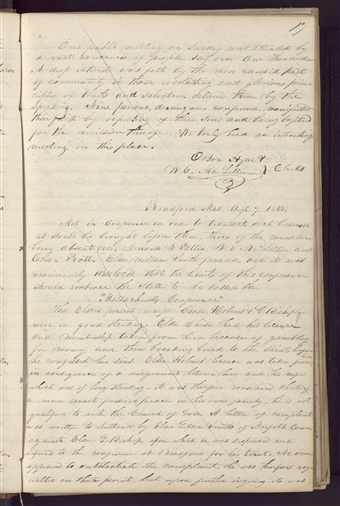 17
Our public meeting on Sunday was attended by
a vast concourse of people, say over One Thousand.
A deep interest was felt by the most candid part
of community in those everlasting and glorious prin-
ciples of truth and salvation delivered them by the
Speakers. Nine persons, during our conference, manifested
their faith by repenting of their sins and being baptised
for the remission thereof. We truly had an interesting
meeting in this place.
Orson Hyde &
W. E. McLellin } Clerks
Bradford Mass. Augt. 7. 1835.
Met in Conference in order to transact such business
as should be brought before them, three of the councillors
being absent viz; David W. Patten, W. E. McLellin and
Orson Pratt. Elder William Smith presided and it was
unanimously resolved that the limits of this conference
should embrace the State to be called the
"Massachusetts Conference"
The Elders present except Chase, Holmes & G. Bishop
were in good standing. Elder Chase had his license
and membership taken from him because of gambling
for money and then breaking bread to the Saints before
he confessed his sins. Elder Holmes' license was taken from
in consequence of a disagreement between him and his wife
which was of long standing. it was therefore considered that if
a man cannot preside in his own family, he is not
qualified to rule the Church of God. A letter of complaint
was written to Kirtland by Elder Gibson Smith of Norfolk Conn.
against Elder G. Bishop upon which he was suspended and
refered to the conference at for his trial. No one
appeared to substantiate the complaint, he was therefore acq-
uitted on that point, but upon further inquiry it was